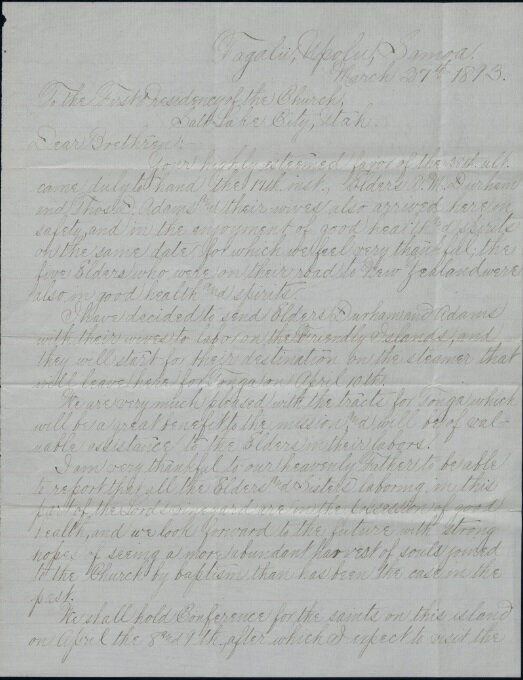 Fagalii, Upolu, Samoa.
March 27th 1893.
To the First Presidency of the Church,
Salt Lake City, Utah.
Dear Brethren:-
Your highly esteemed favor of the 28th ult.
came duly to hand the 17th inst., Elders A. W. Durham
and Thos. Adams and their wives also arrived here in
safety, and in the enjoyment of good health and spirits
on the same date, for which we feel very thankful; the
five Elders who were on their road to New Zealand were
also in good health and spirits.
I have decided to send Elders Durham and Adams
with their wives to labor on the Friendly Islands, and
they will start for their destination on the steamer that
will leave here for Tonga on April 10th.
We are very much pleased with the tracts for Tonga which
will be a great benefit to the mission, and will be of val-
uable assistance to the Elders in their labors.
I am very thankful to our heavenly Father to be able
to report that all the Elders and Sisters laboring in this
part of the Lords vineyard are in the possession of good
health, and we look forward to the future with strong
hopes of seeing a more abundant harvest of souls joined
to the Church by baptism than has been the case in the
past.
We shall hold Conference for the saints on this island
on April the 8 and 9th, after which I expect to visit the